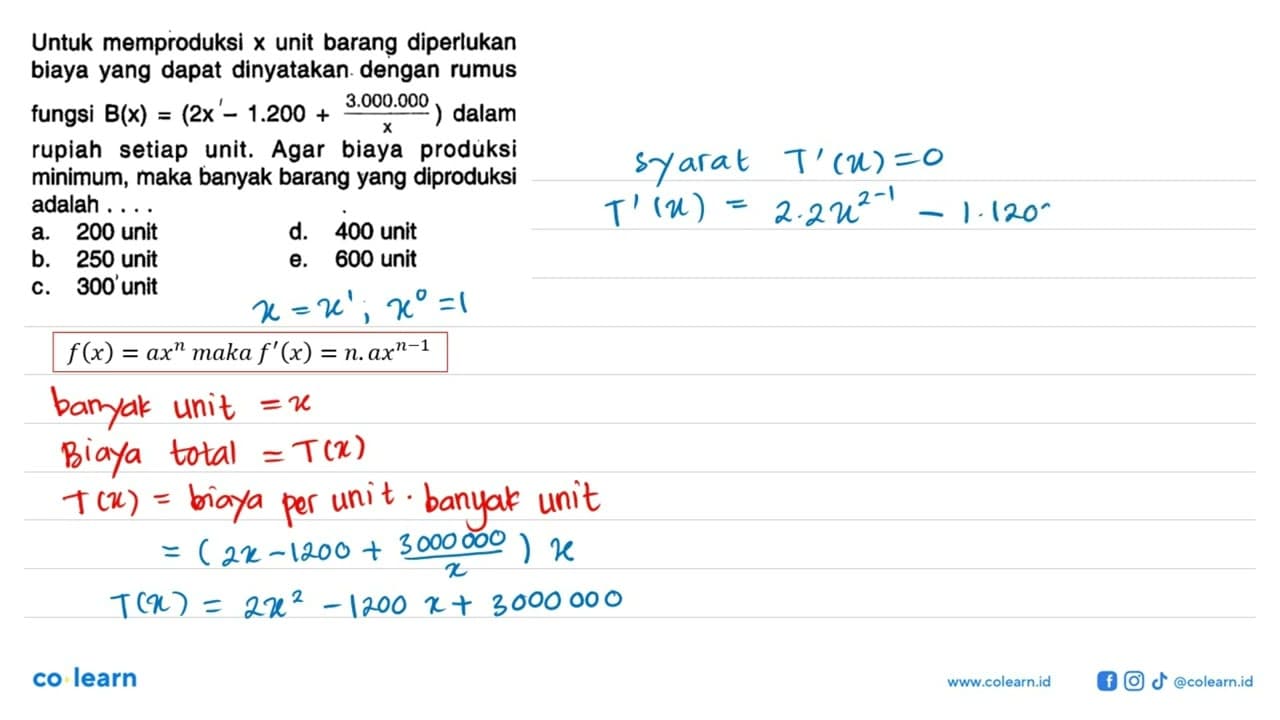 Untuk memproduksi x unit barang diperlukan
biaya yang dapat dinyatakan dengan rumus
fungsi B(x) = (2x - 1.200 + 3.000.000/x) dalam
rupiah setiap unit. Agar biaya produksi
minimum, maka banyak barang yang diproduksi
adalah . . . .
a. 200 unit
b. 250 unit
c. 300 unit
d. 400 unit
e. 600 unit
x = x¹; x⁰ = 1
f(x) = axⁿ maka f'(x) = n.axⁿ⁻¹
banyak unit = x
Biaya total = T(x)
T(x) = biaya per unit . banyak unit
= (2x - 1200 + 3000000/x) x
T(x) = 2x² - 1200 x + 3000000
syarat T'(x) = 0
T'(x) = 2.2x²⁻¹ - 1.120
co learn
www.colearn.id
@colearn.id